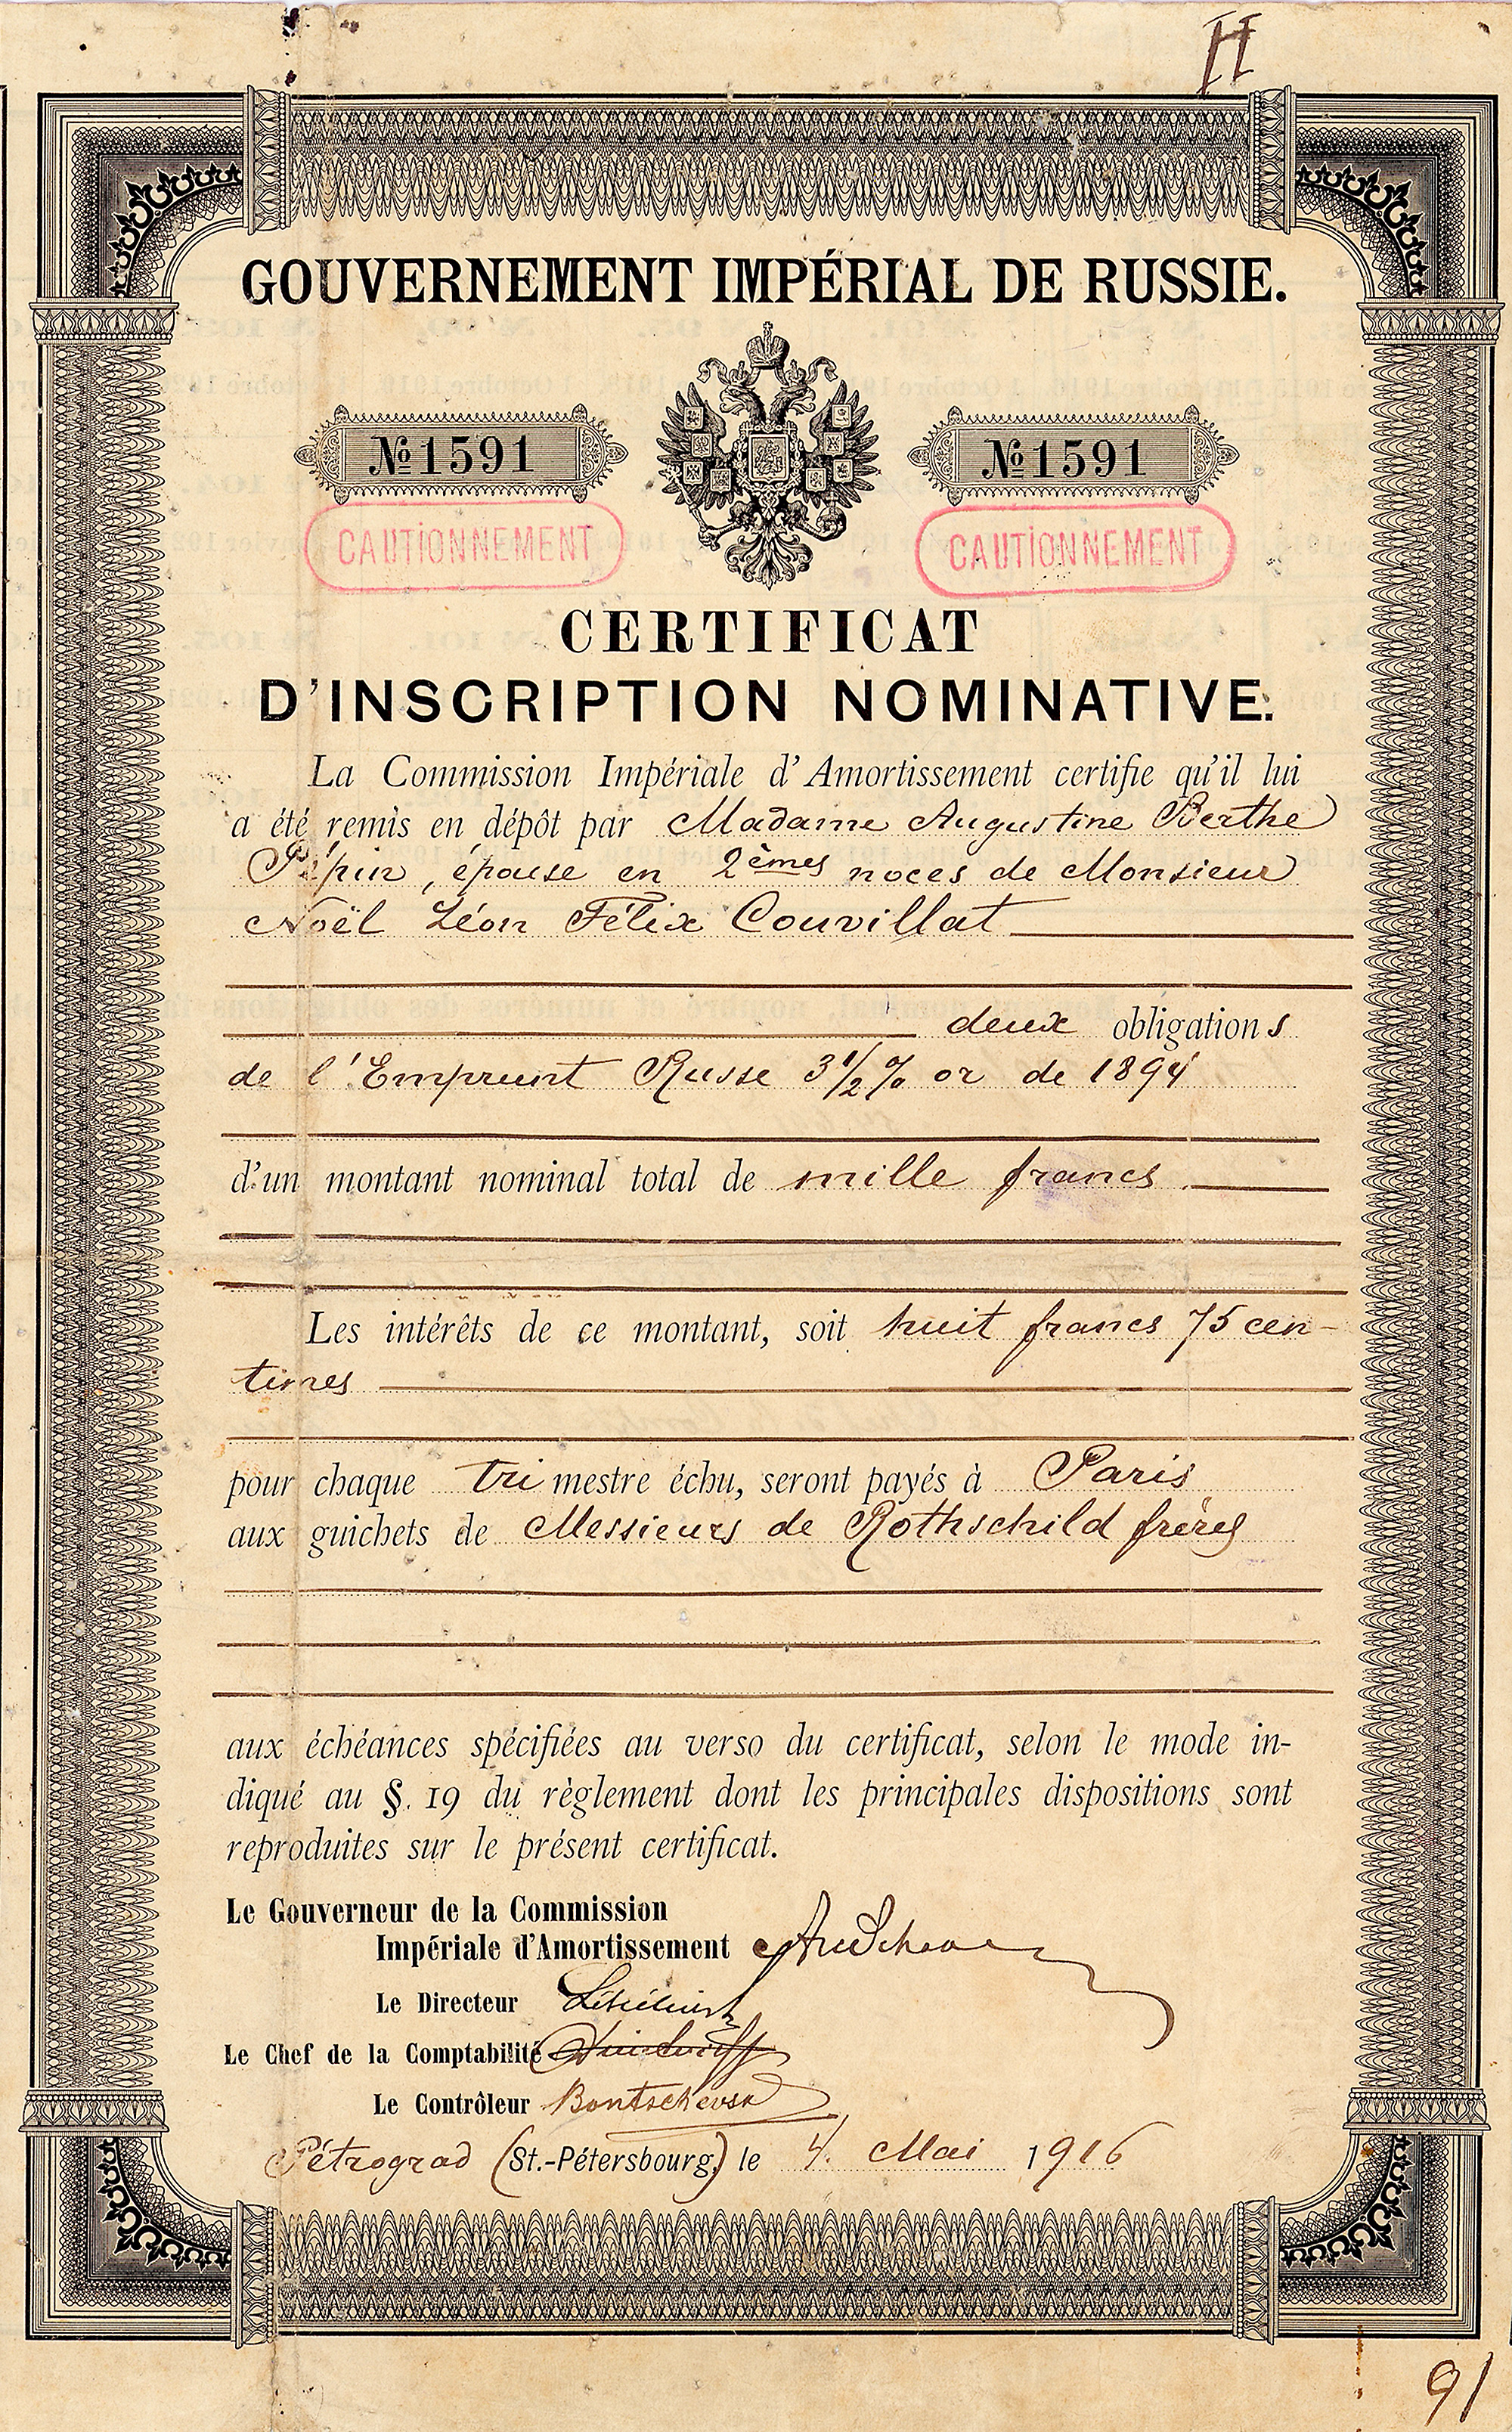 II
GOUVERNEMENT IMPÉRIAL DE RUSSIE.
№ 1591 № 1591
CAUTIONNEMENT CAUTIONNEMENT
CERTIFICAT
D'INSCRIPTION NOMINATIVE.
La Commission Impériale d'Amortissement certifie qu'il lui
a été remis en dépôt par Madame Augustine Berthe
Pépin, épouse en 2èmes noces de Monsieur
Noël Léon Félix Couvillat
deux obligations
de l'Emprunt Russe 3 1/2 % or de 1894
d'un montant nominal total de mille francs
Les intérêts de ce montant, soit huit francs 75 cen-
times
pour chaque trimestre échu, seront payés à Paris
aux guichets de Messieurs de Rothschild frères
aux échéances spécifiées au verso du certificat, selon le mode in-
diqué au §. 19 du règlement dont les principales dispositions sont
reproduites sur le présent certificat.
Le Gouverneur de la Commission
Impériale d'Amortissement
Le Directeur
Le Chef de la Comptabilité
Le Contrôleur
Pétrograd (St.-Pétersbourg,) le 4. Mai 1916
91